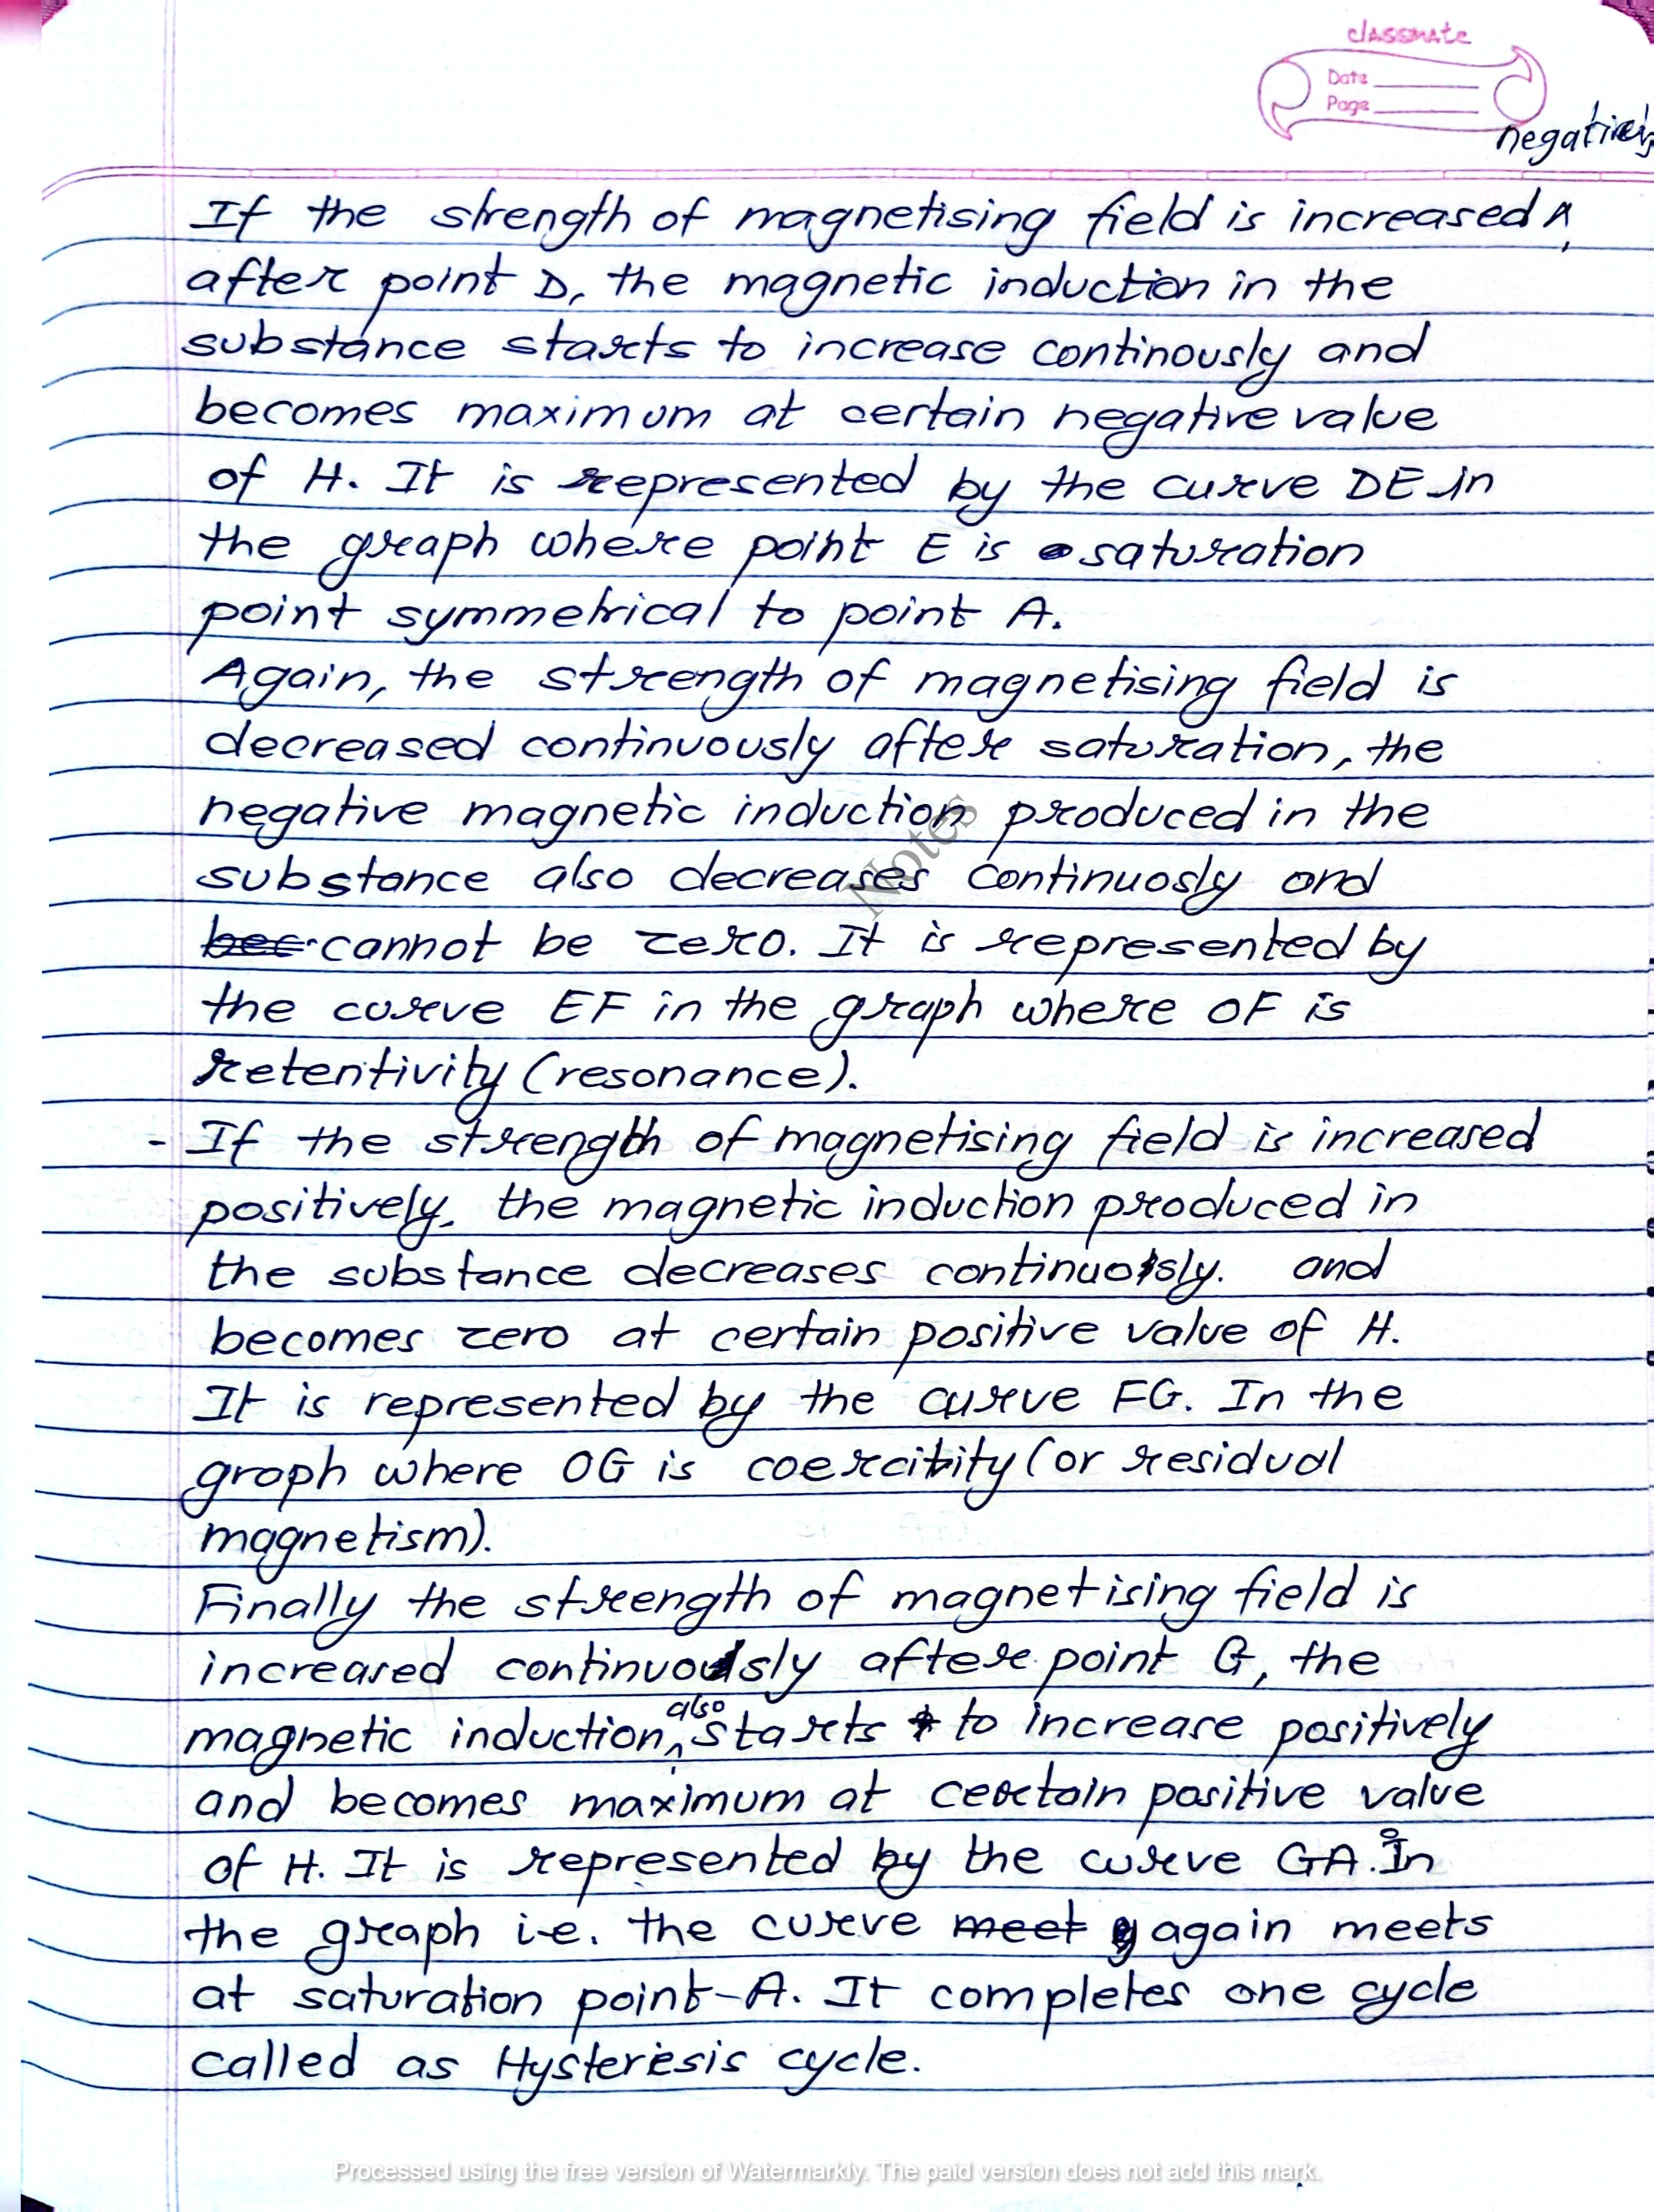 classmate
Date
Page
negatively
If the strength of magnetising field is increased ^
after point D, the magnetic induction in the
substance starts to increase continously and
becomes maximum at certain negative value
of H. It is represented by the curve DE in
the graph where point E is saturation
point symmetrical to point A.
Again, the strength of magnetising field is
decreased continuously after saturation, the
negative magnetic induction produced in the
substance also decreases continuosly and
bec cannot be zero. It is represented by
the curve EF in the graph where OF is
retentivity (resonance).
- If the strength of magnetising field is increased
positively, the magnetic induction produced in
the substance decreases continuously. and
becomes zero at certain positive value of H.
It is represented by the curve FG. In the
graph where OG is coercibity (or residual
magnetism).
Finally the strength of magnetising field is
increased continuously after point G, the
magnetic induction, ^also starts to increase positively
and becomes maximum at certain positive value
of H. It is represented by the curve GA. In
the graph i.e. the curve meet again meets
at saturation point-A. It completes one cycle
called as Hysteresis cycle.
Notes
Processed using the free version of Watermarkly. The paid version does not add this mark.